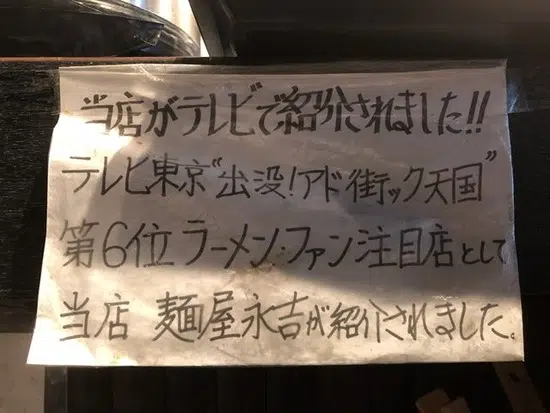 当店がテレビで紹介されました!!
テレビ東京“出没!アド街ック天国”
第6位 ラーメン・ファン注目店として
当店 麺屋永吉が紹介されました。